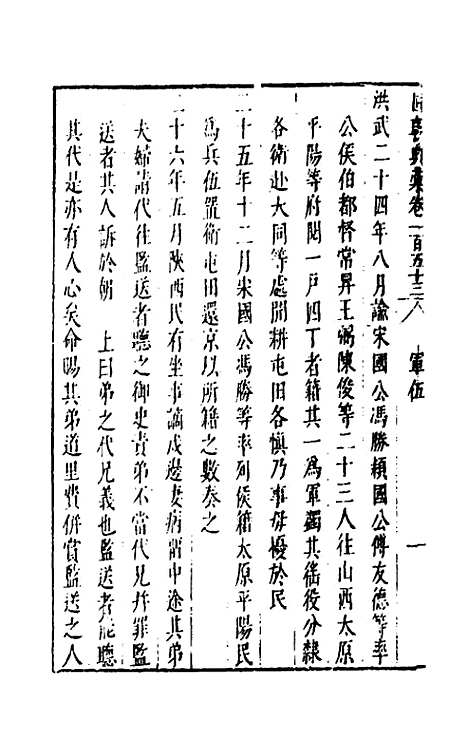 卷一百五十三 軍伍 一
洪武二十四年八月諭宋國公馮勝頴國公傅友德等率
公侯伯都督常昇王弼陳俊等二十三人往山西太原
平陽等府閲一戸四丁者籍其一爲軍蠲其徭役分隸
各衛赴大同等處開耕屯田各慎乃事毋擾於民
二十五年十二月宋國公馮勝等率列侯籍太原平陽民
爲兵伍置衛屯田還京以所籍之數奏之
二十六年五月陝西民有坐事謫戍邊妻病留中途其弟
夫婦請代往監送者聽之御史責弟不當代兄并罪監
送者其人訴於朝 上曰弟之代兄義也監送者能聽
其代是亦有人心矣命賜其弟道里費併賞監送之人